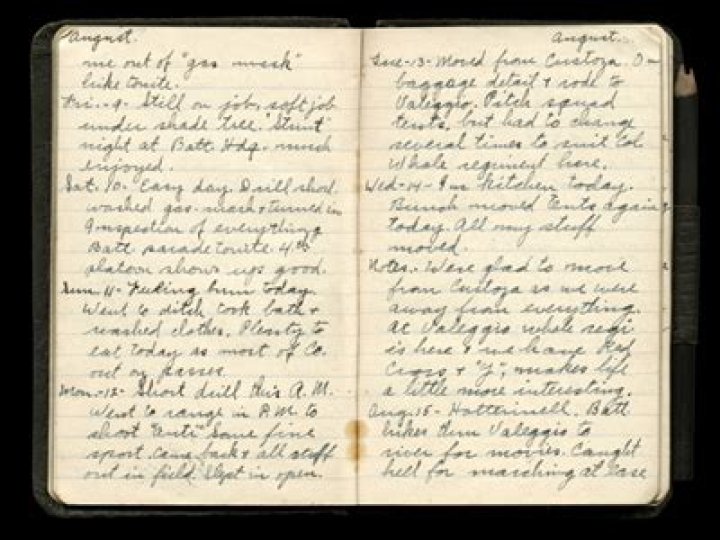 August.
me out of "gas mask"
hike tonite.
Fri.-9- Still on job, soft job
under shade tree. "Stunt"
night at Batt. Hdq. much
enjoyed.
Sat. 10- Easy day. Drill short.
washed gas-mask & turned in
Inspection of everything
Batt parade tonite. 4th
platoon shows up good.
Sun. 11- Feeling bum today.
Went to ditch took bath &
washed clothes. Plenty to
eat today as most of Co.
out on passes.
Mon.-12- Short drill this A.M.
Went to range in P.M. to
shoot Some fine
sport. Came back & all stuff
out in field. Slept in open.
August.
Tue-13- Moved from Custoza. On
baggage detail & rode to
Valeggio. Pitch squad
tents, but had to change
several times to suit Col.
Whole regiment here.
Wed-14- In kitchen today.
Bunch moved tents again
today. All my stuff
moved.
Notes.- Were glad to move
from Custoza as we were
away from everything.
At Valeggio whole regi
is here & we have Red
Cross & "Y", makes life
a little more interesting.
Aug. 15- Hotternell. Batt
hikes thru Valeggio to
river for movies. Caught
hell for marching at ease